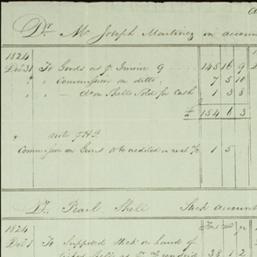 Dr Mr Joseph Martinez in accoun
1824
Decr 31 To Goods as pr Invoice G 145 16 9
" " Commission on ditto 7 5 10
" " Do on Shells Sold for Cash 1 3 8
£ 154 6 3
note F.H.P
Commission on Guns to be credited in next 1 5
Dr Pearl Shell Stock account
1824
Decr 1 To Supposed Stock on hand of
38 1 2